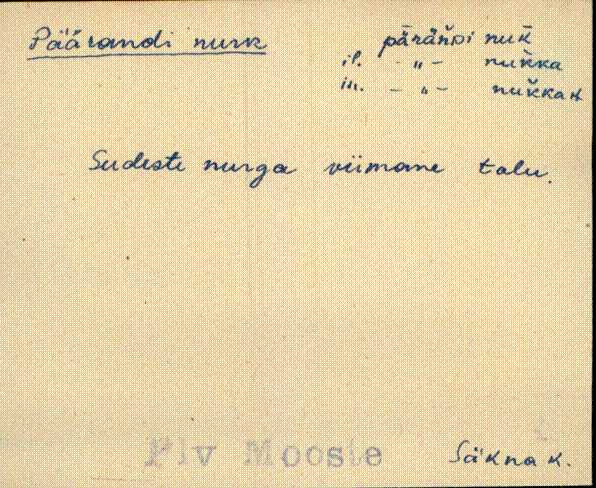 Päärandi nurk pārän̆di nuk̆
il. - „ - nuk̆ka
in. - „ - nuk̆kan
Sudeste nurga viimane talu.
Plv Mooste Säkna k.